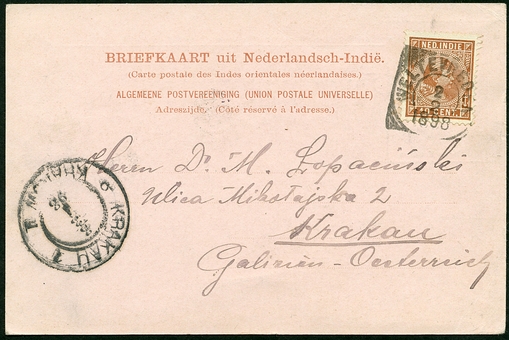 BRIEFKAART uit Nederlandsch-Indië.
(Carte postale des Indes orientales néerlandaises.)
ALGEMEENE POSTVEREENIGING (UNION POSTALE UNIVERSELLE)
Adreszijde. (Côté réservé à l'adresse.)
NED. INDIE
CENT
2
1898
Herrn Dr. M. Łopaciński
Ulica Mikołajska 2
Krakau
Galizien-Oesterreich
KRAKAU 1
KRAKÓW 1